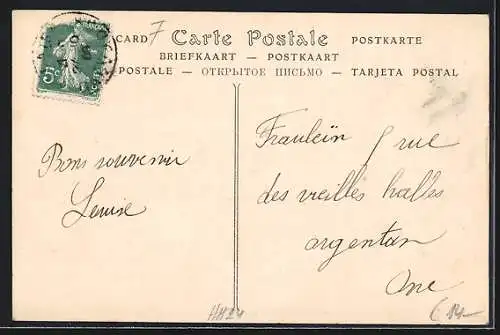 CARD 7 Carte Postale POSTKARTE
BRIEFKAART — POSTKAART
POSTALE — ОТКРЫТОЕ ПИСЬМО — TARJETA POSTAL
5c
Bons souvenir
Louise
Fraulein 5 rue
des vieilles halles
argentan
Orne
€ 14-